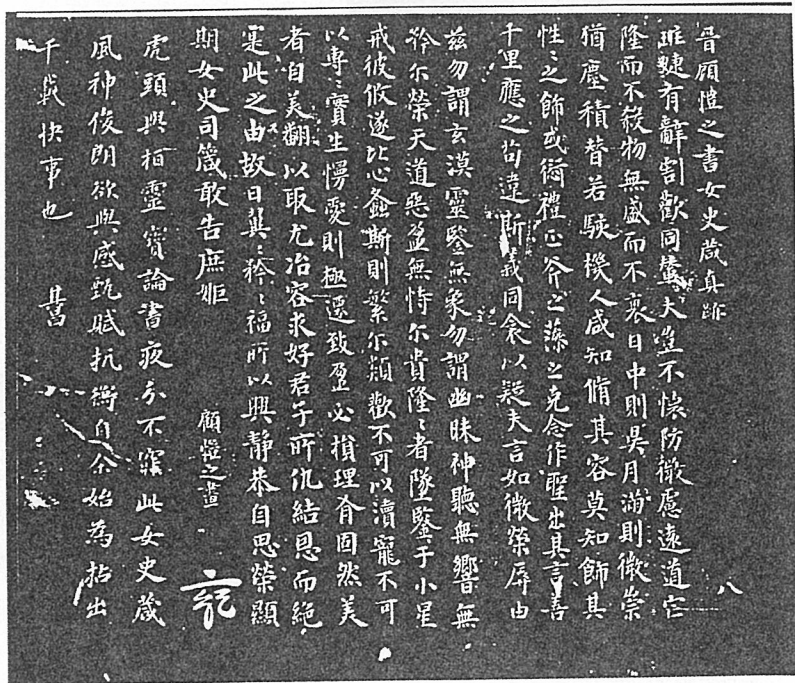 八
晉顧愷之書女史葴真跡
班婕有辭割歡同輦夫豈不懷防微慮遠道它
隆而不殺物無盛而不衰日中則昃月滿則微崇
猶塵積替若駭機人咸知脩其容莫知飾其
性〻之飾或愆禮正斧之藻之克念作聖出其言善
千里應之苟違斯義同衾以疑夫言如微榮辱由
茲勿謂玄漠靈鑒無象勿謂幽昧神聽無響無
矜尔榮天道惡盈無恃尔貴隆〻者墜鑒于小星
戒彼攸遂比心螽斯則繁尔類歡不可以瀆寵不可
以專〻實生慢愛則極遷致盈必損理有固然美
者自美翩以取尤冶容求好君子所仇結恩而絕
寔此之由故曰翼〻矜〻福所以興靜恭自思榮顯
期女史司箴敢告庶姬
顧愷之畫
虎頭與桓靈寶論書夜分不寐此女史葴
風神俊朗欲與感甄賦抗衡自余始為拈出
千載快事也 其昌